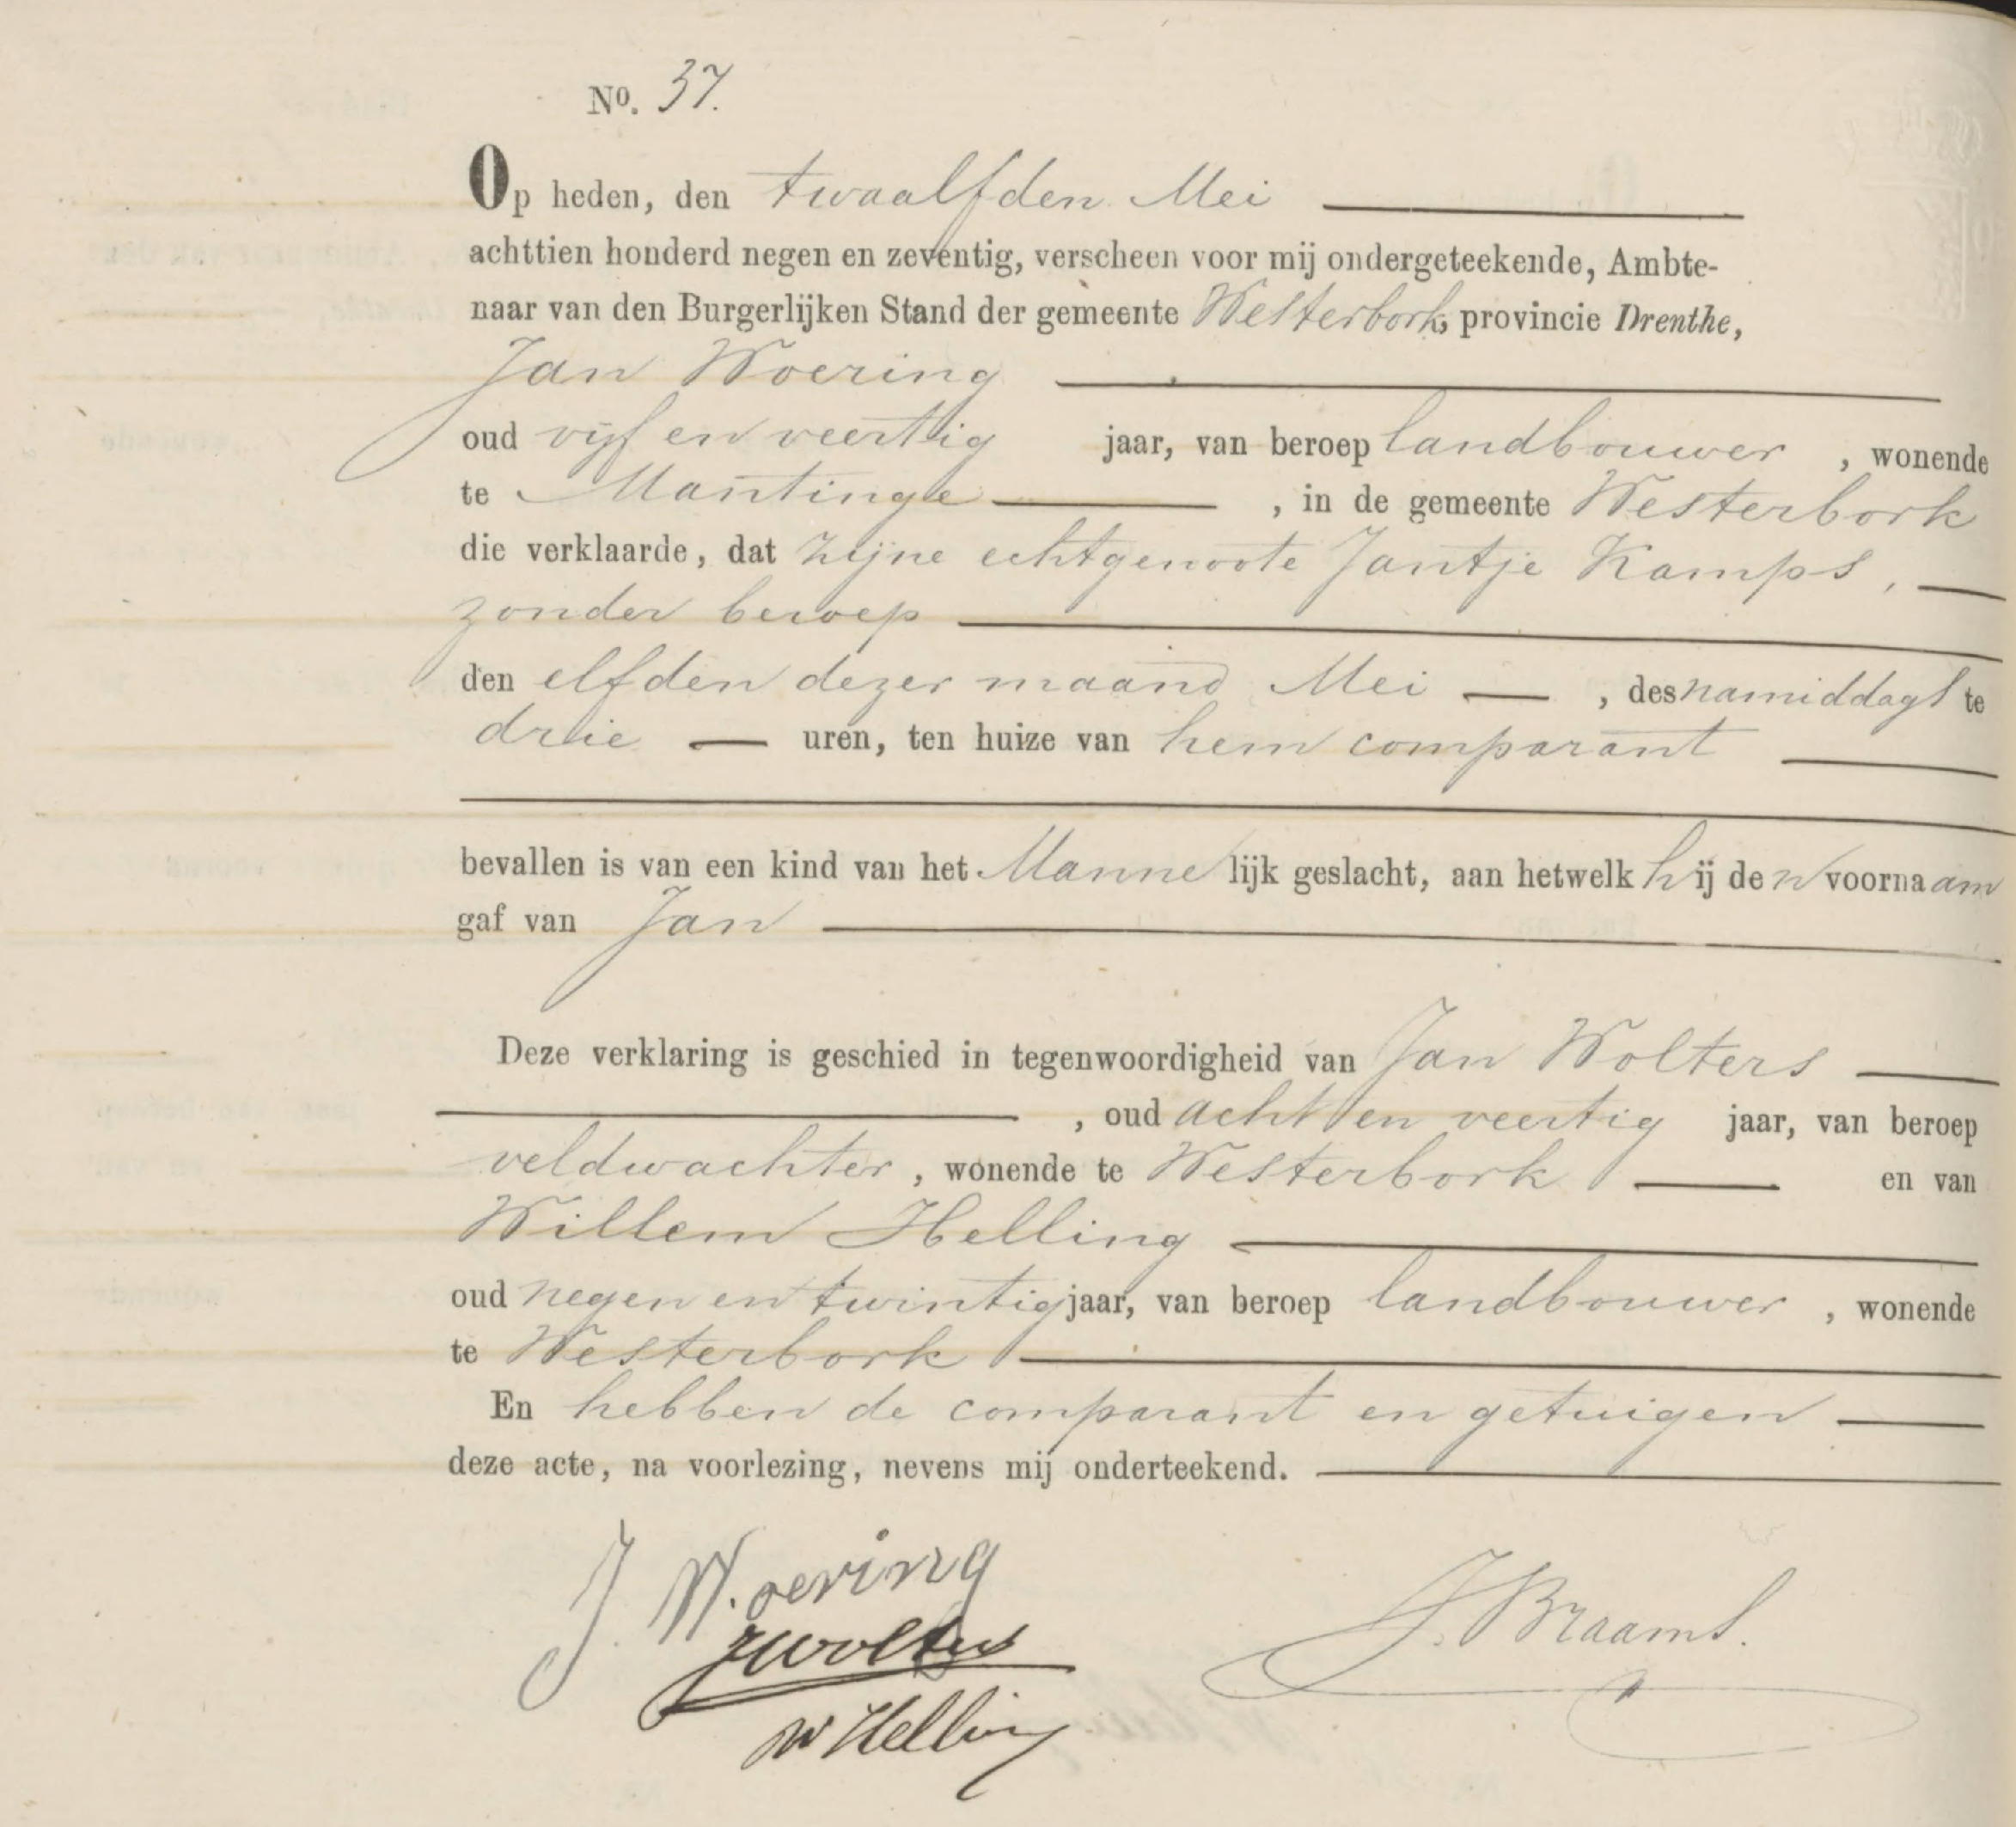 No. 37.
Op heden, den twaalfden Mei
achttien honderd negen en zeventig, verscheen voor mij ondergeteekende, Ambte-
naar van den Burgerlijken Stand der gemeente Westerbork, provincie Drenthe,
Jan Woering
oud vijf en veertig jaar, van beroep landbouwer, wonende
te Mantinge, in de gemeente Westerbork
die verklaarde, dat zijne echtgenoote Jantje Kamps,
zonder beroep
den elfden dezer maand Mei, des namiddags te
drie uren, ten huize van hem comparant
bevallen is van een kind van het Mannelijk geslacht, aan hetwelk hij den voornaam
gaf van Jan
Deze verklaring is geschied in tegenwoordigheid van Jan Wolters
, oud acht en veertig jaar, van beroep
veldwachter, wonende te Westerbork en van
Willem Helling
oud negen en twintig jaar, van beroep landbouwer, wonende
te Westerbork
En hebben de comparant en getuigen
deze acte, na voorlezing, nevens mij onderteekend.
J. W.oering
J Wolters
W Helling
J. Braams.